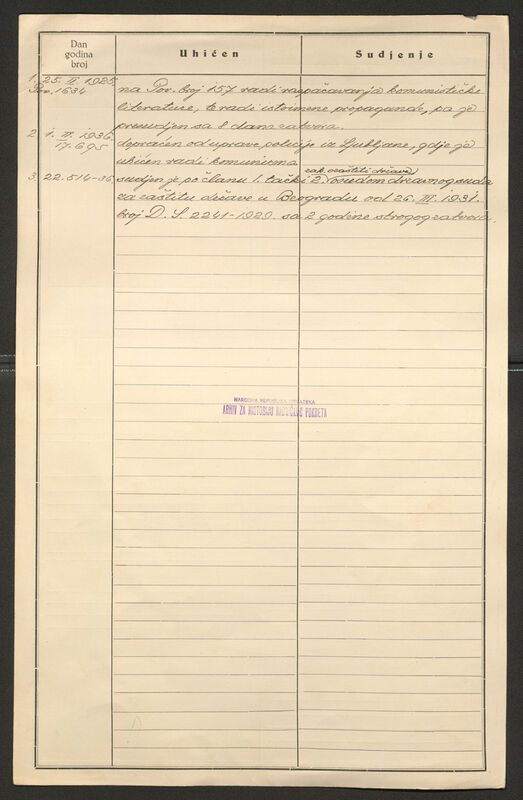 Dan
godina
broj
Uhićen
Sudjenje
1. 25. II. 1925.
Pov. 1634
na Pov. broj 157 radi raspačavanja komunističke
literature, te radi istoimene propagande, pa je
presudjen sa 8 dana zatvora.
2. 1. II. 1936.
17.695
dopraćen od uprave policije iz Ljubljane, gdje je
uhićen radi komunizma
zak. o zaštiti države
3. 22.514-36
sudjen je po članu 1. tački 2. osudom državnog suda
za zaštitu države u Beogradu od 26. III. 1931.
broj D. S. 2241-1920. sa 2 godine strogog zatvora.
NARODNA REPUBLIKA HRVATSKA
ARHIV ZA HISTORIJU RADNIČKOG POKRETA